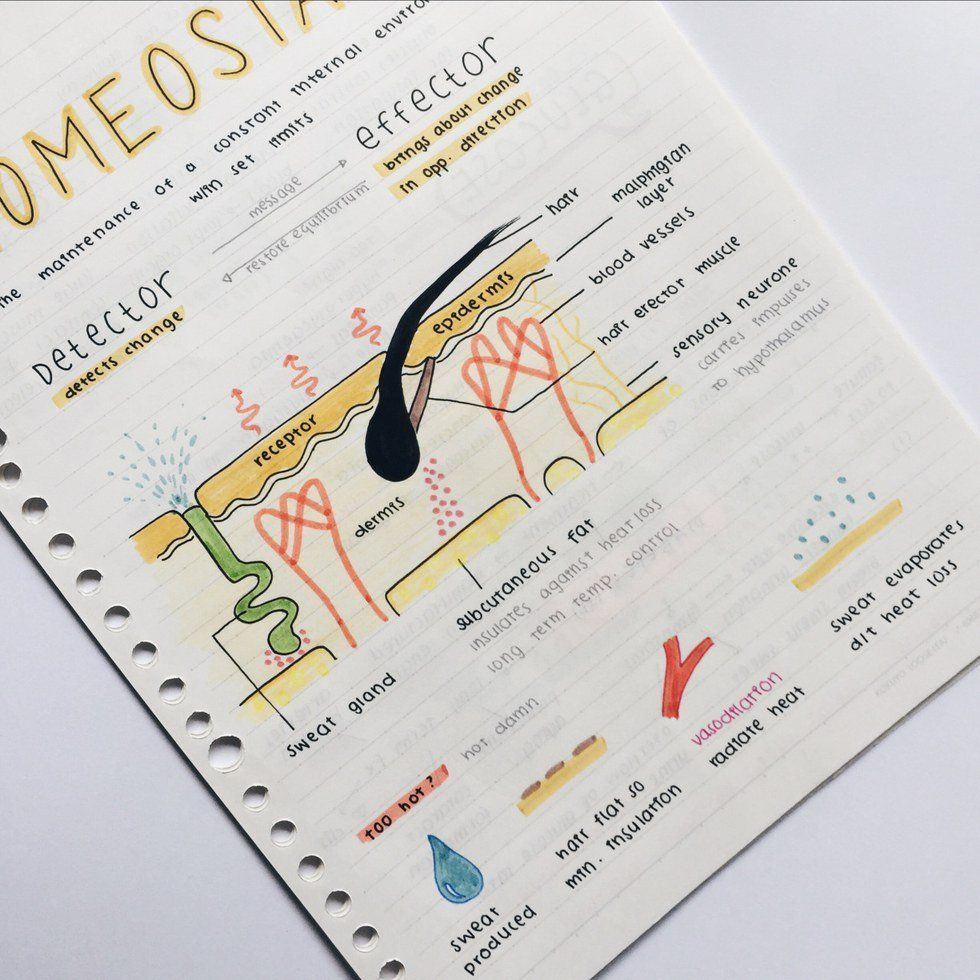 OMEOSTA
the maintenance of a constant internal environ
w/in set limits
Detector
detects change
message
restore equilibrium
effector
brings about change
in opp. direction
hair
malphigian
layer
blood vessels
hair erector muscle
sensory neurone
carries impulses
to hypothalamus
epidermis
receptor
dermis
subcutaneous fat
insulates against heat loss
long term temp. control
sweat gland
too hot?
hot damn
sweat
produced
hair flat so
min. insulation
vasodilation
radiate heat
sweat evaporates
dlt heat loss